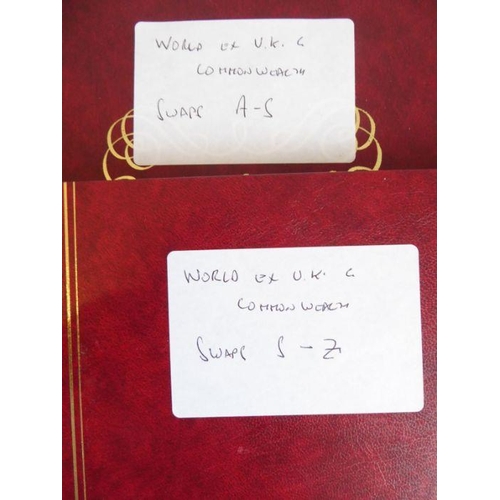 WORLD ex U.K. &
COMMONWEALTH
SWAPS A-S
WORLD ex U.K. &
COMMONWEALTH
SWAPS S - Z